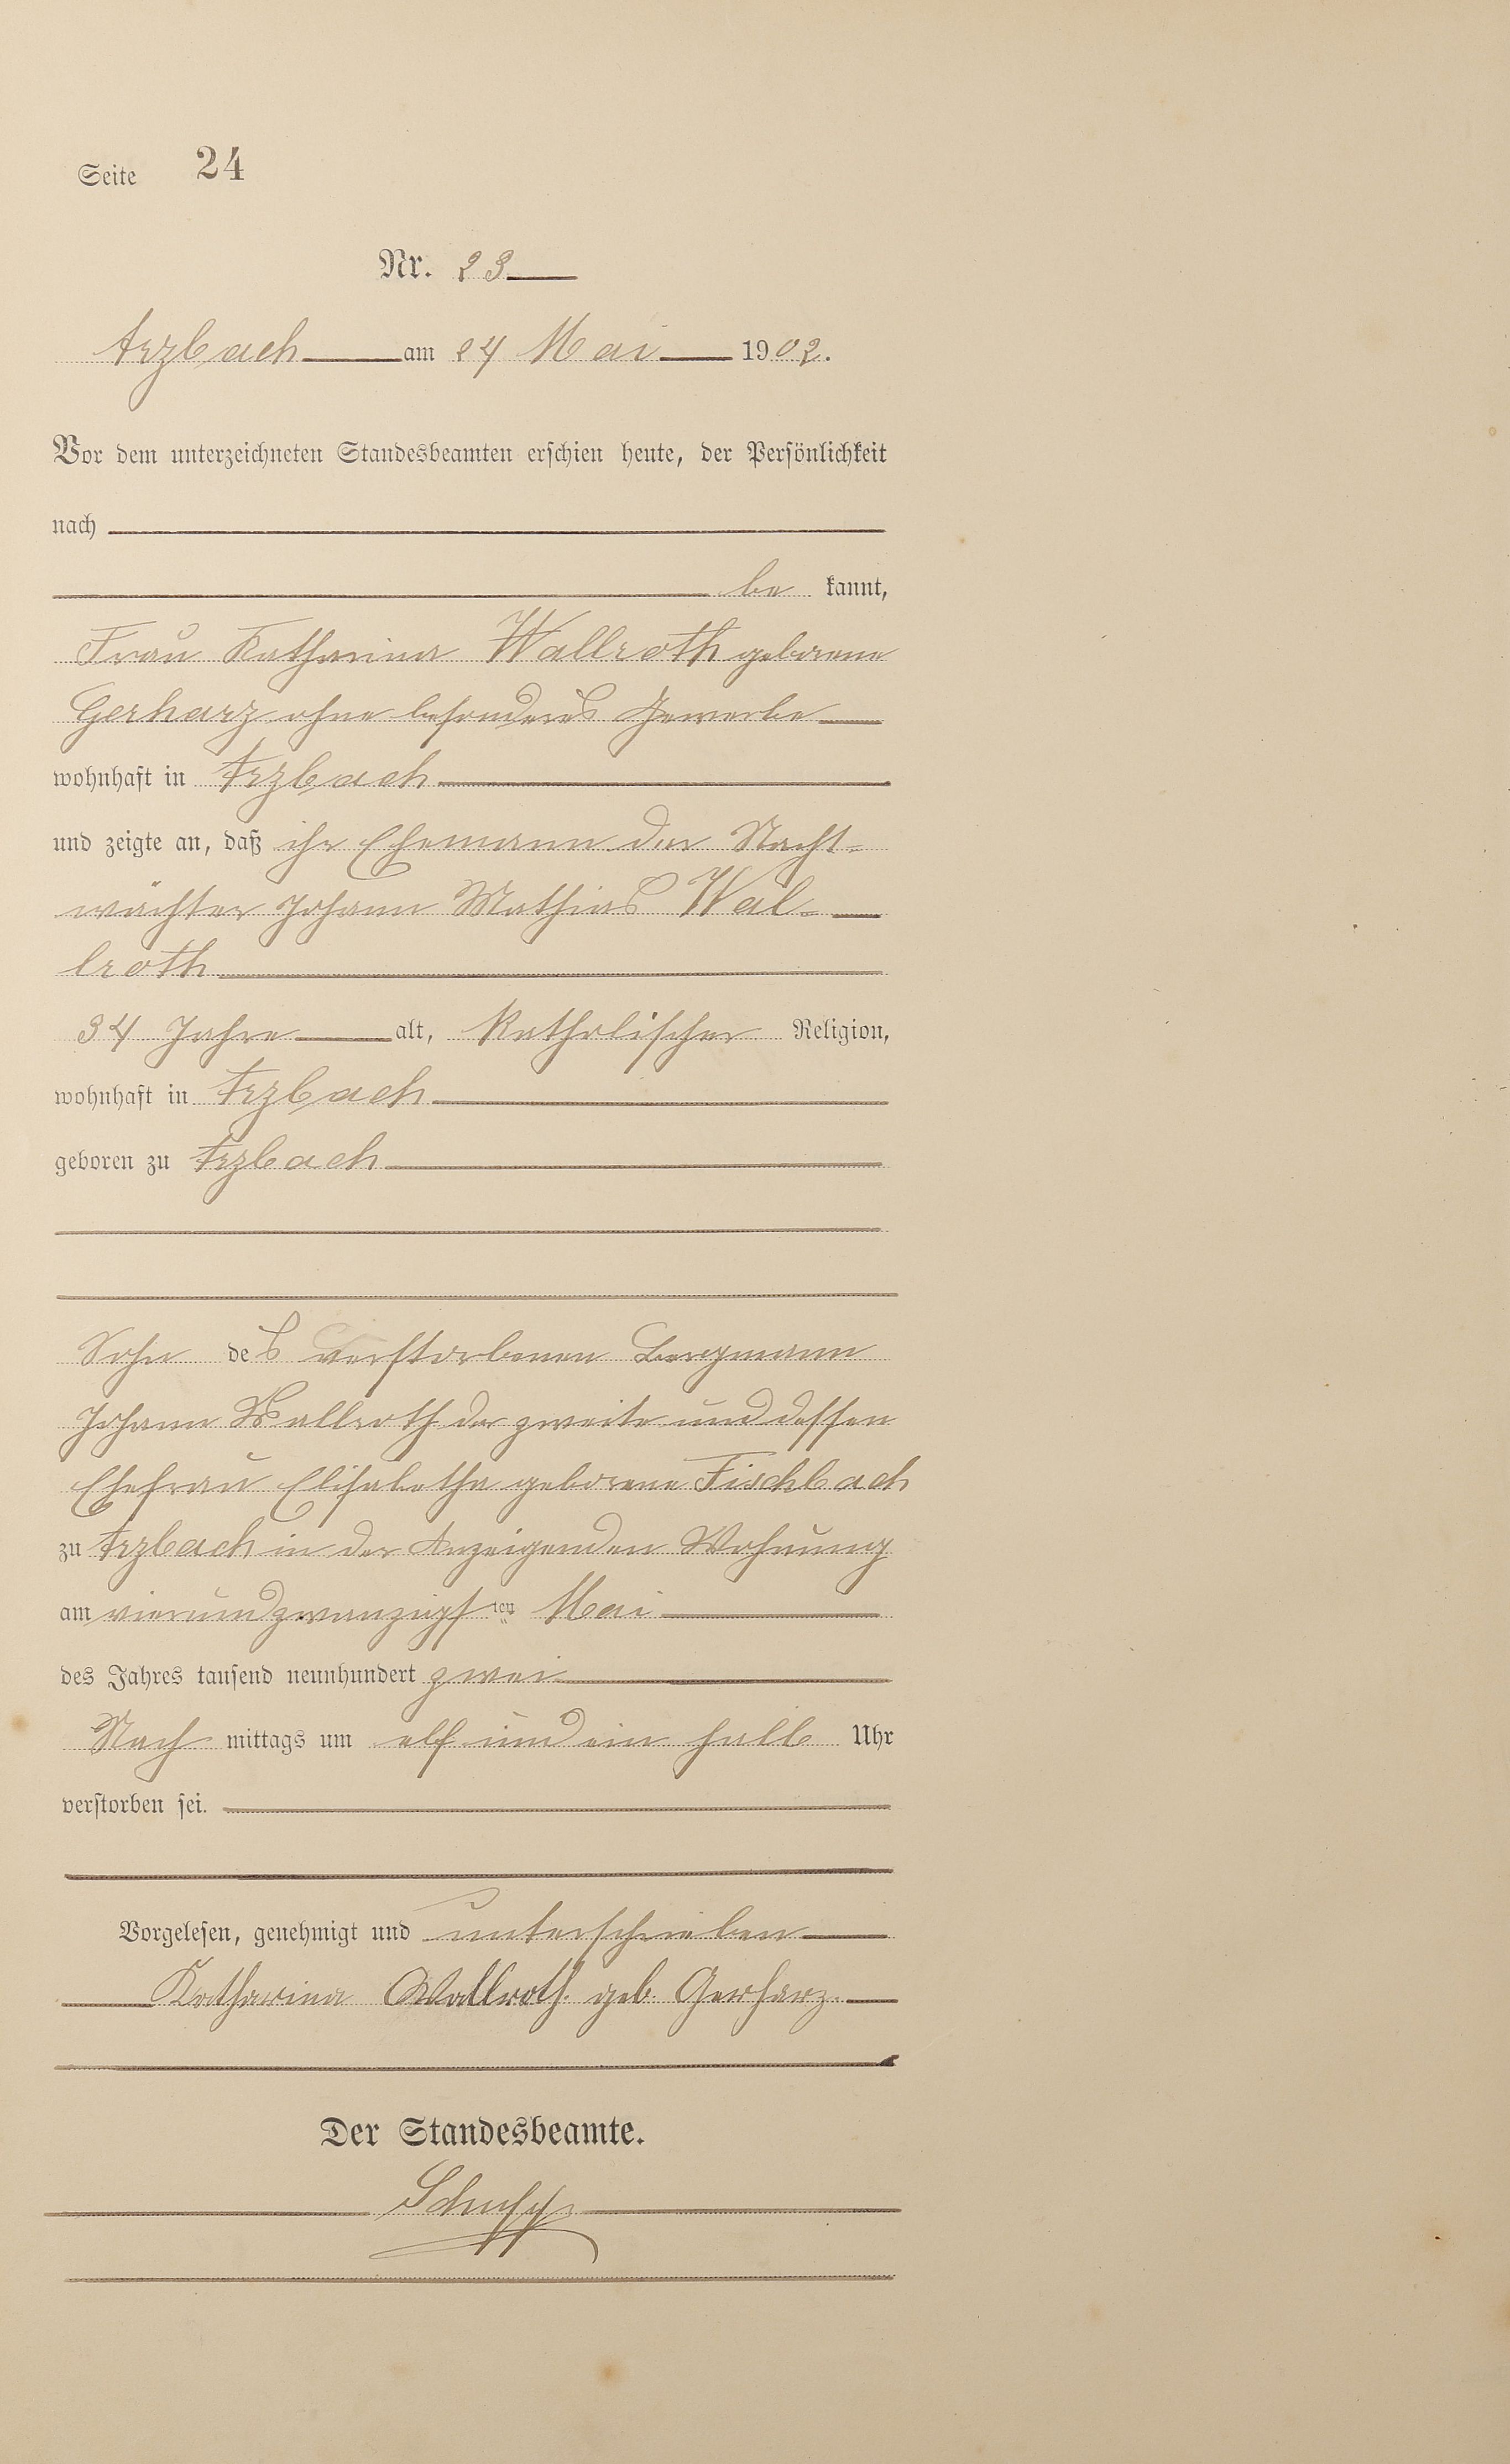 Seite 24
Nr. 23
Arzbach am 24 Mai 1902.
Vor dem unterzeichneten Standesbeamten erschien heute, der Persönlichkeit
nach
be kannt,
Frau Katharina Wallroth geborene
Gerharz ohne besonderes Gewerbe
wohnhaft in Arzbach
und zeigte an, daß ihr Ehemann der Nacht-
wächter Johann Mathias Wal-
lroth
34 Jahre alt, katholischer Religion,
wohnhaft in Arzbach
geboren zu Arzbach
Sohn des verstorbenen Bergmann
Johann Wallroth der zweite und dessen
Ehefrau Elisabetha geborene Fischbach
zu Arzbach in der Anzeigenden Wohnung
am vierundzwanzigsten Mai
des Jahres tausend neunhundert zwei
Nach mittags um elf und ein halb Uhr
verstorben sei.
Vorgelesen, genehmigt und unterschrieben
Katharina Wallroth. geb. Gerharz.
Der Standesbeamte.
Schupp